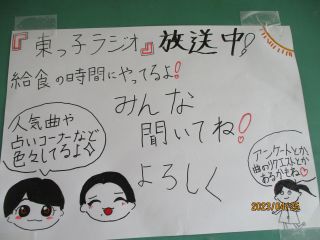 『東っ子ラジオ』放送中!
給食の時間にやってるよ!
みんな
聞いてね!
よろしく
人気曲や
占いコーナーなど
色々してるよ☆
アンケートとか、
曲のリクエストとか
あるかもね♡